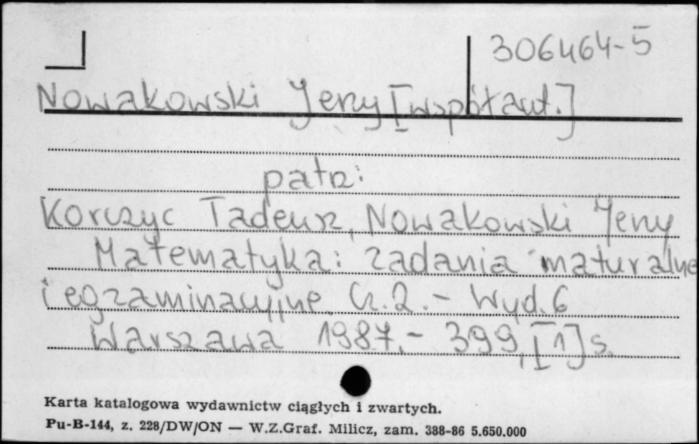 306464-5
Nowakowski Jerzy [współaut.]
patrz:
Korczyc Tadeusz, Nowakowski Jerzy
Matematyka: zadania maturalne
i egzaminacyjne. Cz. 2. - Wyd. 6
Warszawa 1987. - 399, [1] s.
Karta katalogowa wydawnictw ciągłych i zwartych.
Pu-B-144, z. 228/DW/ON — W.Z.Graf. Milicz, zam. 388-86 5.650.000